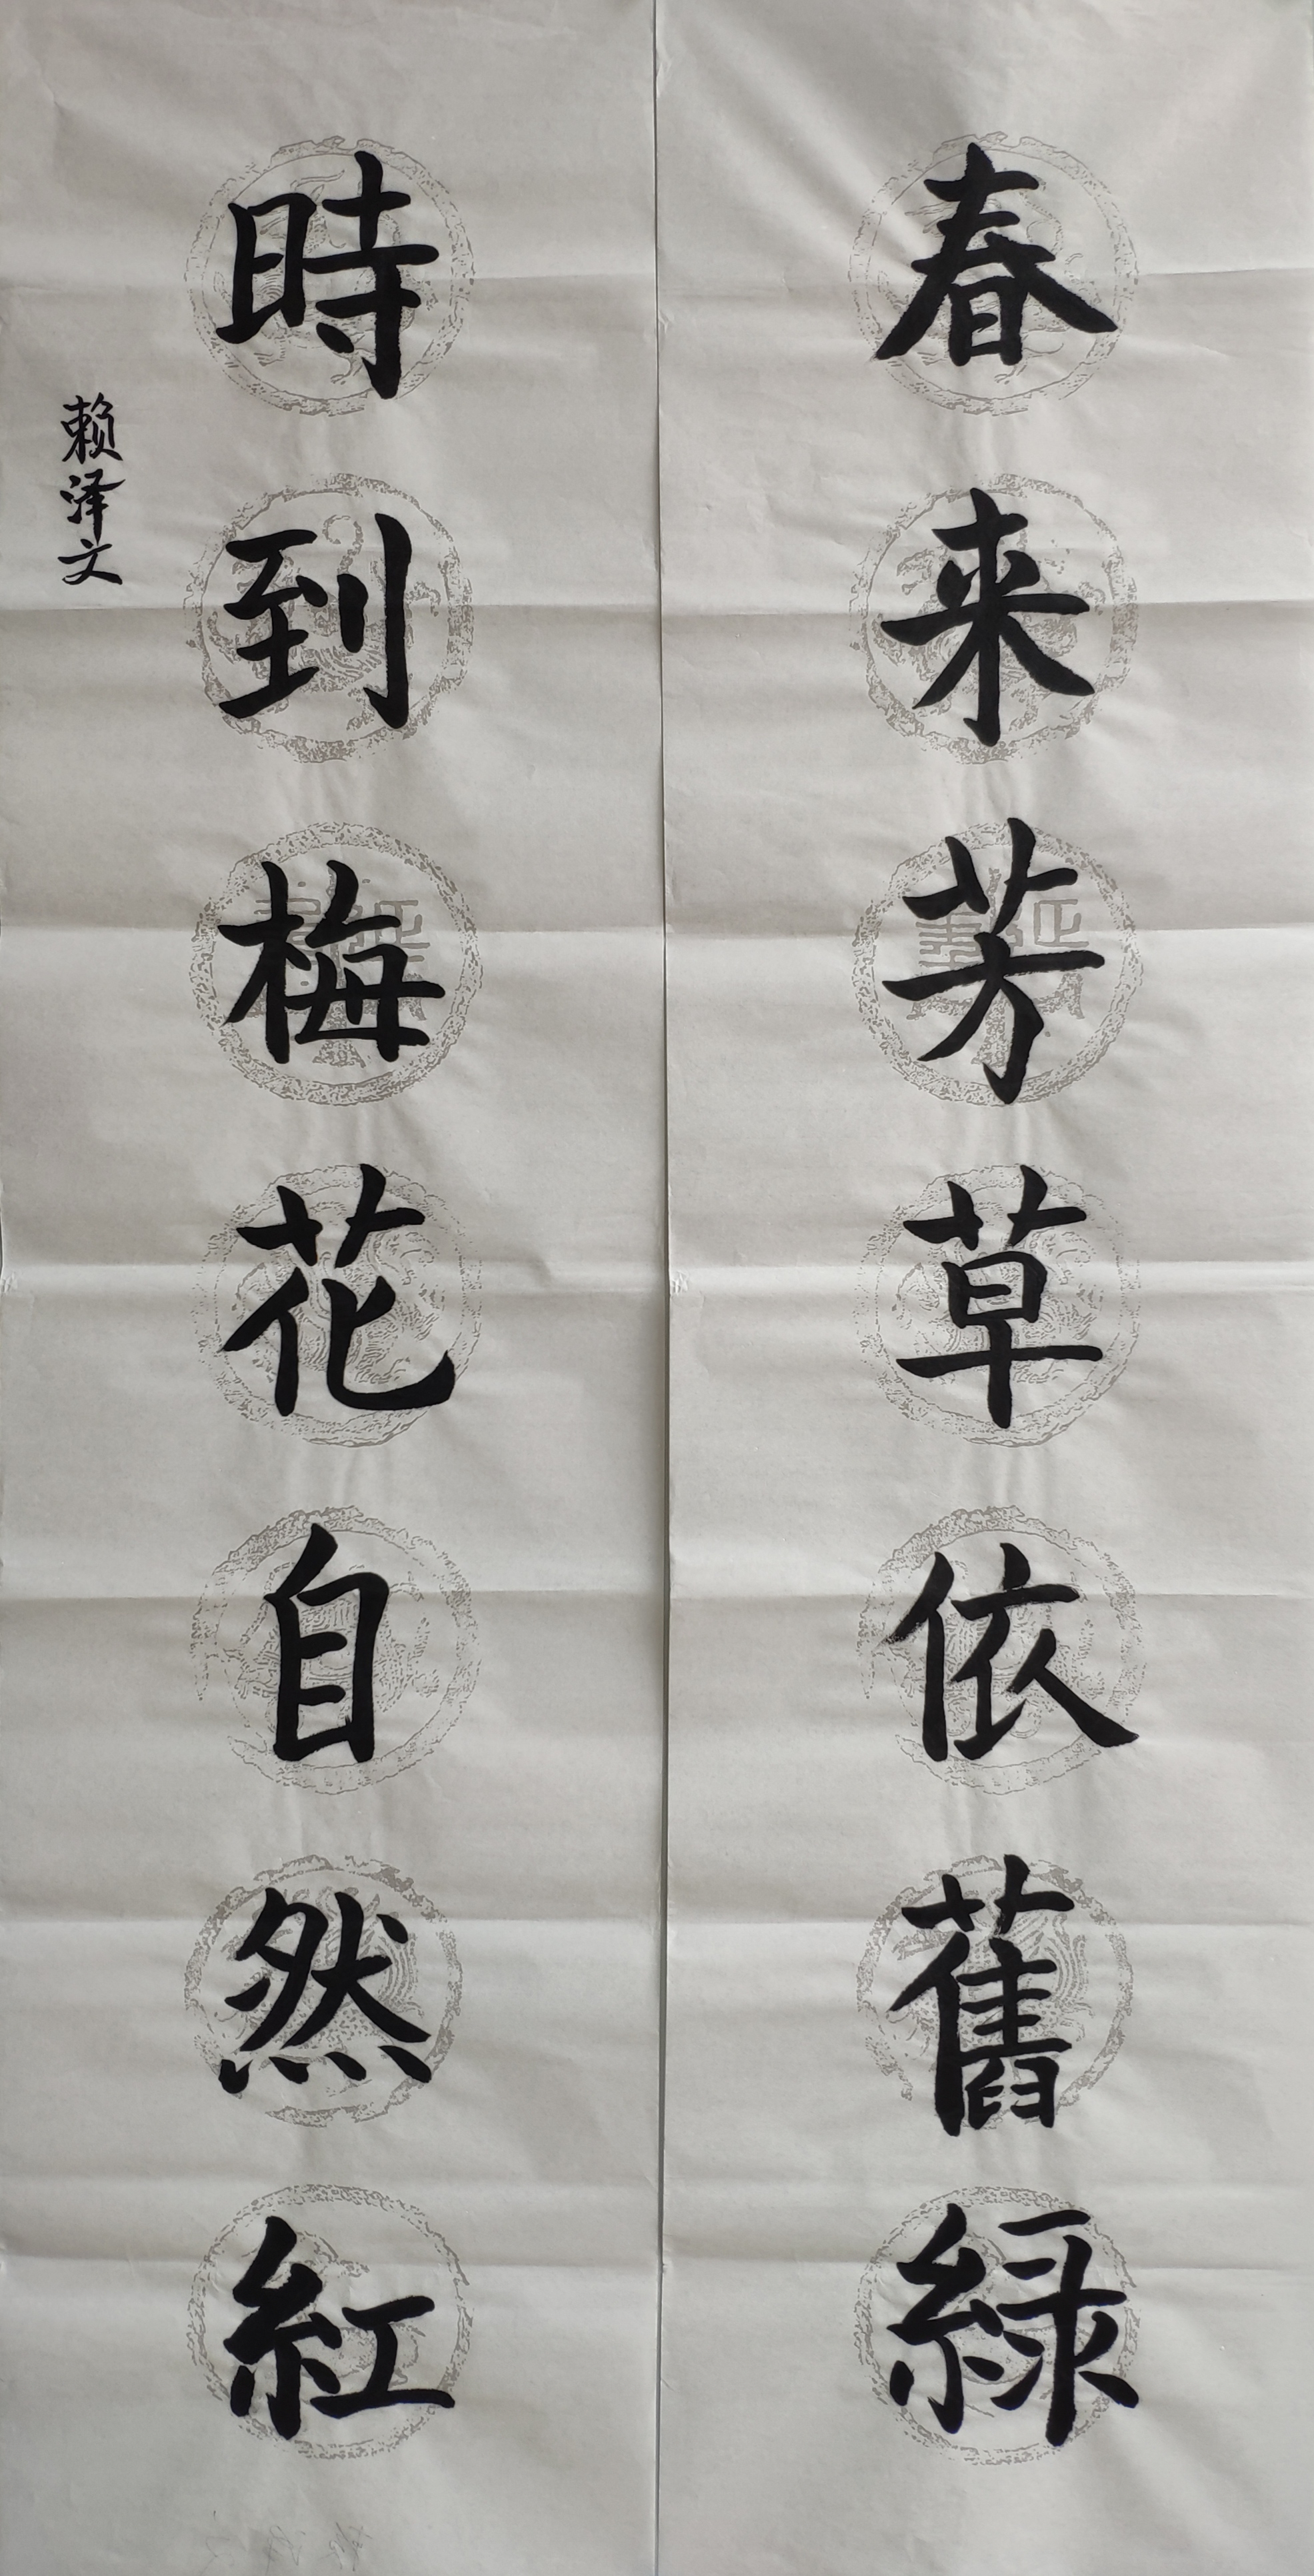 春来芳草依舊緑
時到梅花自然紅
赖泽文